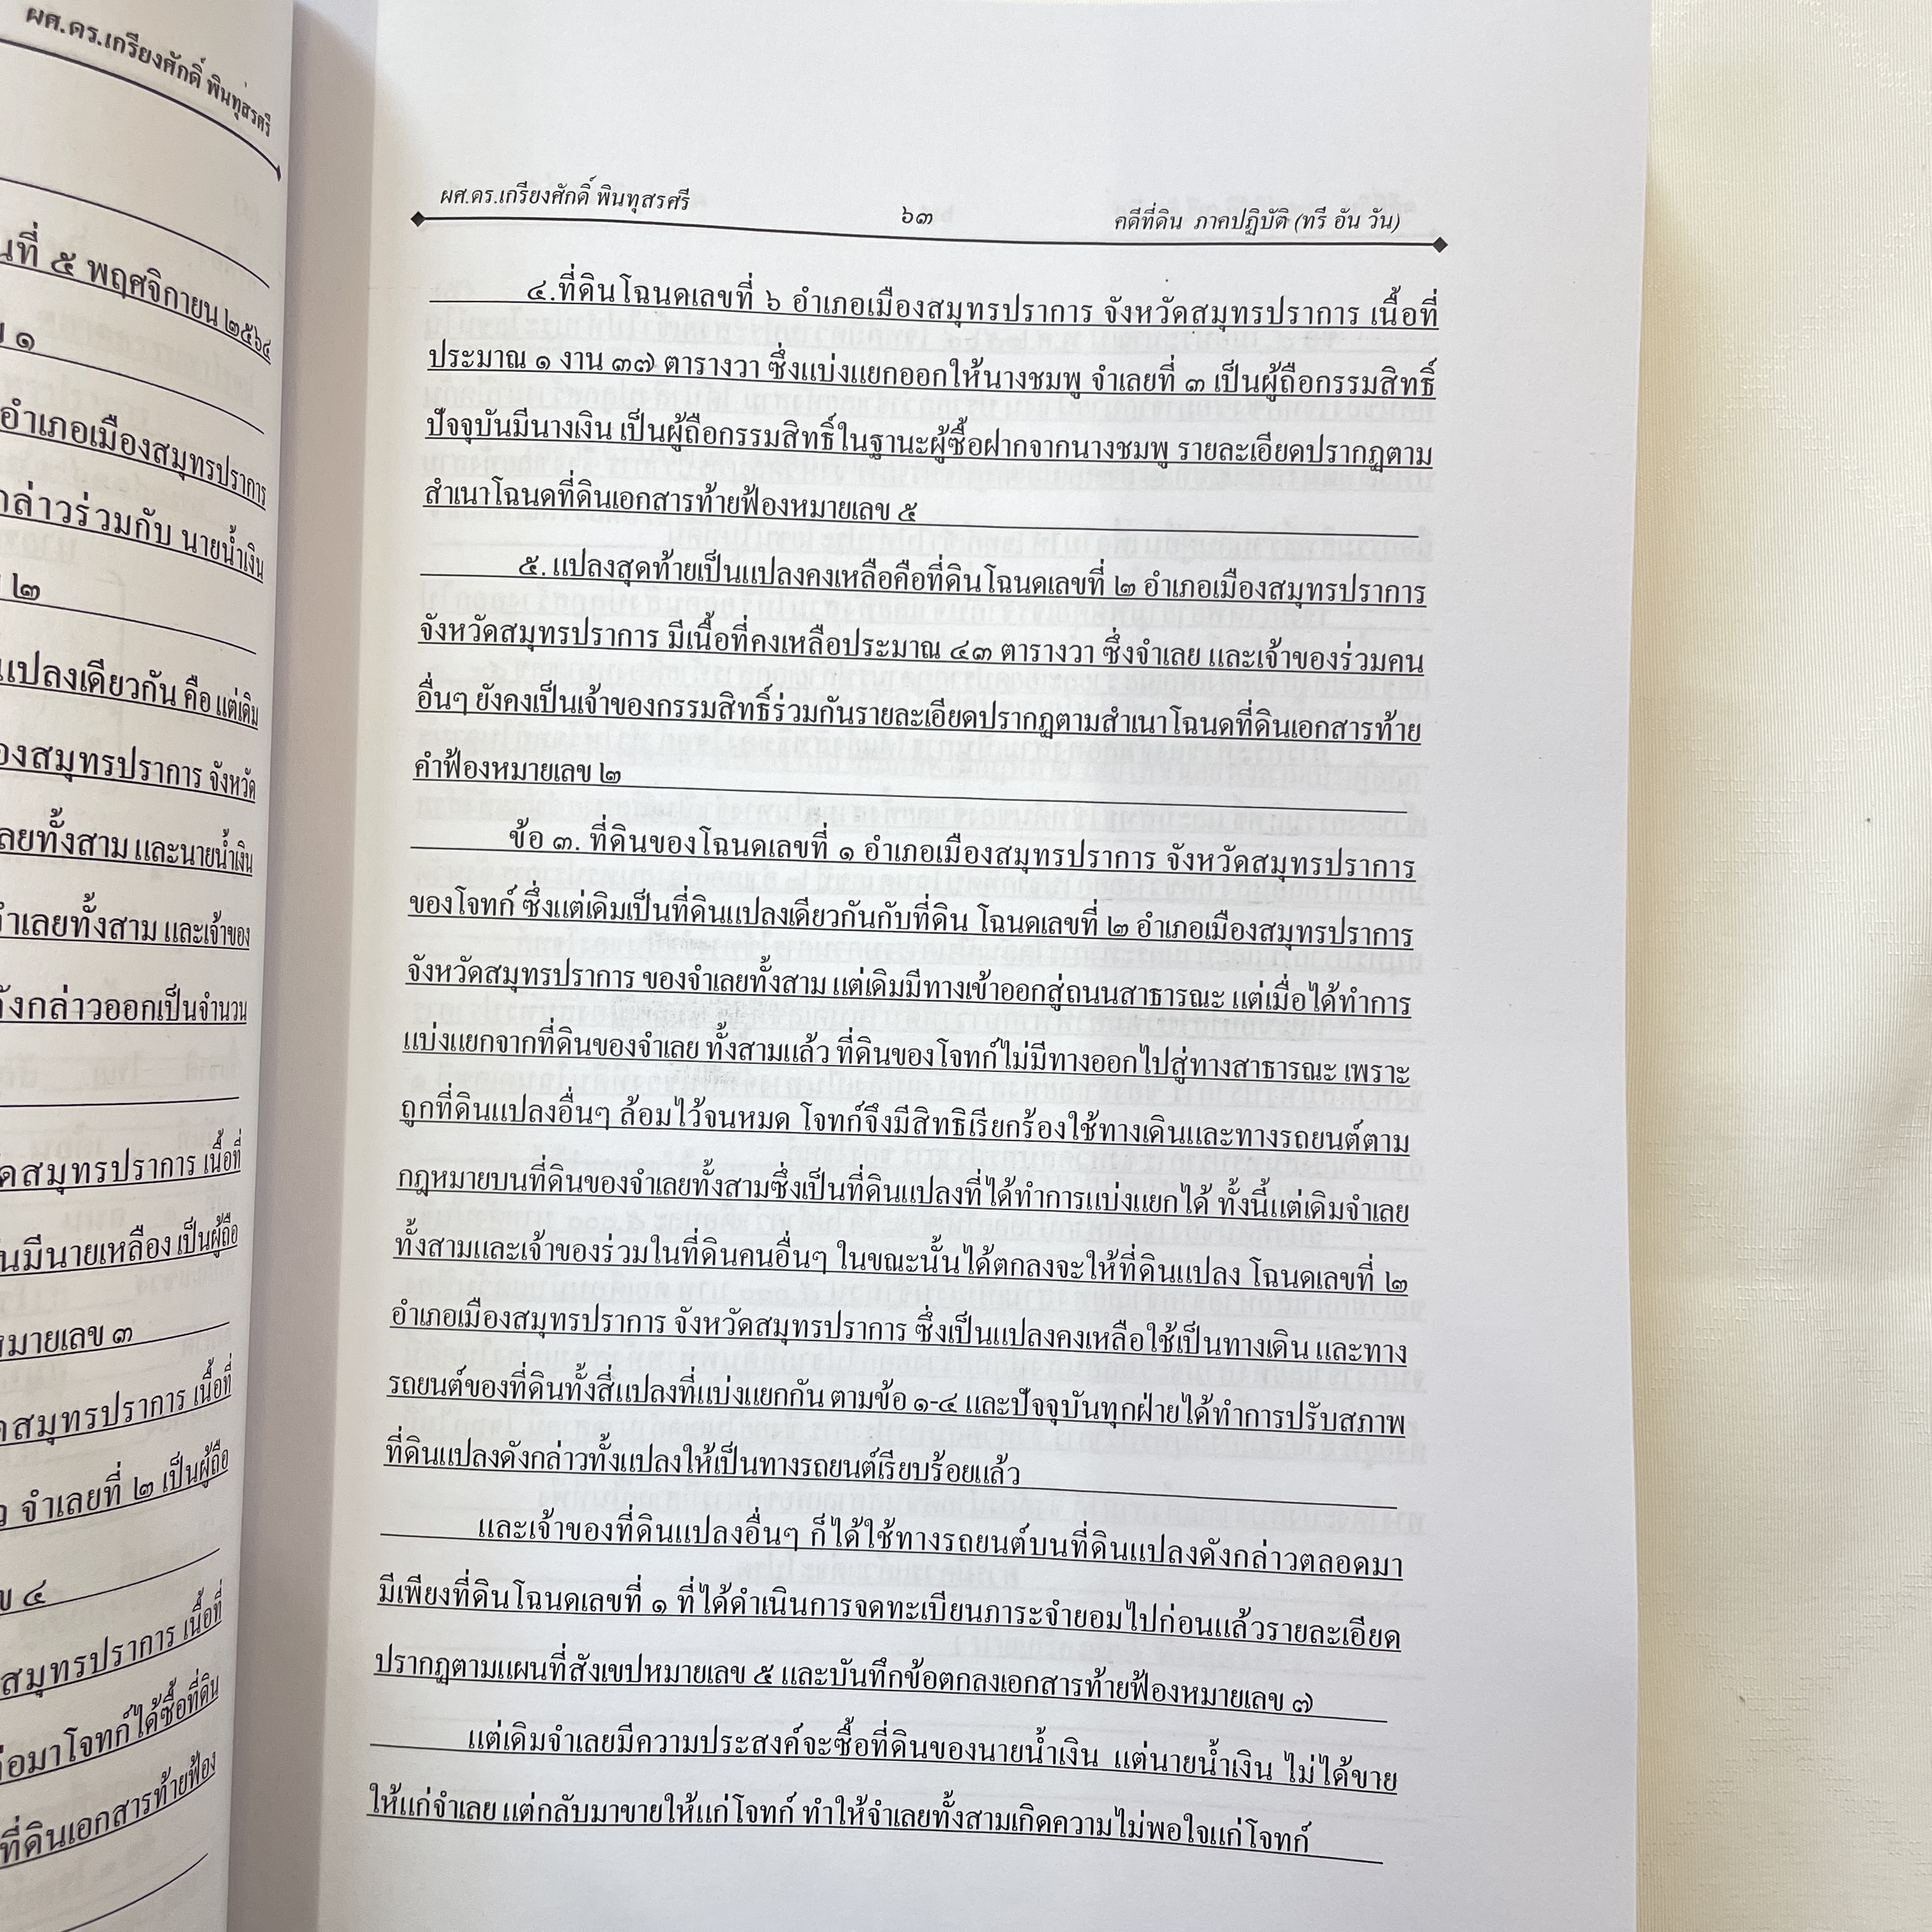 ผศ.ดร.เกรียงศักดิ์ พินทุสรศรี
นที่ ๕ พฤศจิกายน ๒๕๖๔
๑
อำเภอเมืองสมุทรปราการ
กล่าวร่วมกับ นายน้ำเงิน
๒
แปลงเดียวกัน คือ แต่เดิม
องสมุทรปราการ จังหวัด
ลยทั้งสาม และนายน้ำเงิน
จำเลยทั้งสาม และเจ้าของ
ดังกล่าวออกเป็นจำนวน
ดสมุทรปราการ เนื้อที่
นมีนายเหลือง เป็นผู้ถือ
หมายเลข ๓
ดสมุทรปราการ เนื้อที่
ว จำเลยที่ ๒ เป็นผู้ถือ
ข ๔
สมุทรปราการ เนื้อที่
อมาโจทก์ได้ซื้อที่ดิน
ที่ดินเอกสารท้ายฟ้อง
ผศ.ดร.เกรียงศักดิ์ พินทุสรศรี ๖๓ คดีที่ดิน ภาคปฏิบัติ (ทรี อัน วัน)
๔.ที่ดินโฉนดเลขที่ ๖ อำเภอเมืองสมุทรปราการ จังหวัดสมุทรปราการ เนื้อที่
ประมาณ ๑ งาน ๓๗ ตารางวา ซึ่งแบ่งแยกออกให้นางชมพู จำเลยที่ ๓ เป็นผู้ถือกรรมสิทธิ์
ปัจจุบันมีนางเงิน เป็นผู้ถือกรรมสิทธิ์ในฐานะผู้ซื้อฝากจากนางชมพู รายละเอียดปรากฏตาม
สำเนาโฉนดที่ดินเอกสารท้ายฟ้องหมายเลข ๕
๕. แปลงสุดท้ายเป็นแปลงคงเหลือคือที่ดินโฉนดเลขที่ ๒ อำเภอเมืองสมุทรปราการ
จังหวัดสมุทรปราการ มีเนื้อที่คงเหลือประมาณ ๔๓ ตารางวา ซึ่งจำเลย และเจ้าของร่วมคน
อื่นๆ ยังคงเป็นเจ้าของกรรมสิทธิ์ร่วมกันรายละเอียดปรากฏตามสำเนาโฉนดที่ดินเอกสารท้าย
คำฟ้องหมายเลข ๒
ข้อ ๓. ที่ดินของโฉนดเลขที่ ๑ อำเภอเมืองสมุทรปราการ จังหวัดสมุทรปราการ
ของโจทก์ ซึ่งแต่เดิมเป็นที่ดินแปลงเดียวกันกับที่ดิน โฉนดเลขที่ ๒ อำเภอเมืองสมุทรปราการ
จังหวัดสมุทรปราการ ของจำเลยทั้งสาม แต่เดิมมีทางเข้าออกสู่ถนนสาธารณะ แต่เมื่อได้ทำการ
แบ่งแยกจากที่ดินของจำเลย ทั้งสามแล้ว ที่ดินของโจทก์ไม่มีทางออกไปสู่ทางสาธารณะ เพราะ
ถูกที่ดินแปลงอื่นๆ ล้อมไว้จนหมด โจทก์จึงมีสิทธิเรียกร้องใช้ทางเดินและทางรถยนต์ตาม
กฎหมายบนที่ดินของจำเลยทั้งสามซึ่งเป็นที่ดินแปลงที่ได้ทำการแบ่งแยกได้ ทั้งนี้แต่เดิมจำเลย
ทั้งสามและเจ้าของร่วมในที่ดินคนอื่นๆ ในขณะนั้นได้ตกลงจะให้ที่ดินแปลง โฉนดเลขที่ ๒
อำเภอเมืองสมุทรปราการ จังหวัดสมุทรปราการ ซึ่งเป็นแปลงคงเหลือใช้เป็นทางเดิน และทาง
รถยนต์ของที่ดินทั้งสี่แปลงที่แบ่งแยกกัน ตามข้อ ๑-๔ และปัจจุบันทุกฝ่ายได้ทำการปรับสภาพ
ที่ดินแปลงดังกล่าวทั้งแปลงให้เป็นทางรถยนต์เรียบร้อยแล้ว
และเจ้าของที่ดินแปลงอื่นๆ ก็ได้ใช้ทางรถยนต์บนที่ดินแปลงดังกล่าวตลอดมา
มีเพียงที่ดินโฉนดเลขที่ ๑ ที่ได้ดำเนินการจดทะเบียนภาระจำยอมไปก่อนแล้วรายละเอียด
ปรากฏตามแผนที่สังเขปหมายเลข ๕ และบันทึกข้อตกลงเอกสารท้ายฟ้องหมายเลข ๗
แต่เดิมจำเลยมีความประสงค์จะซื้อที่ดินของนายน้ำเงิน แต่นายน้ำเงิน ไม่ได้ขาย
ให้แก่จำเลย แต่กลับมาขายให้แก่โจทก์ ทำให้จำเลยทั้งสามเกิดความไม่พอใจแก่โจทก์